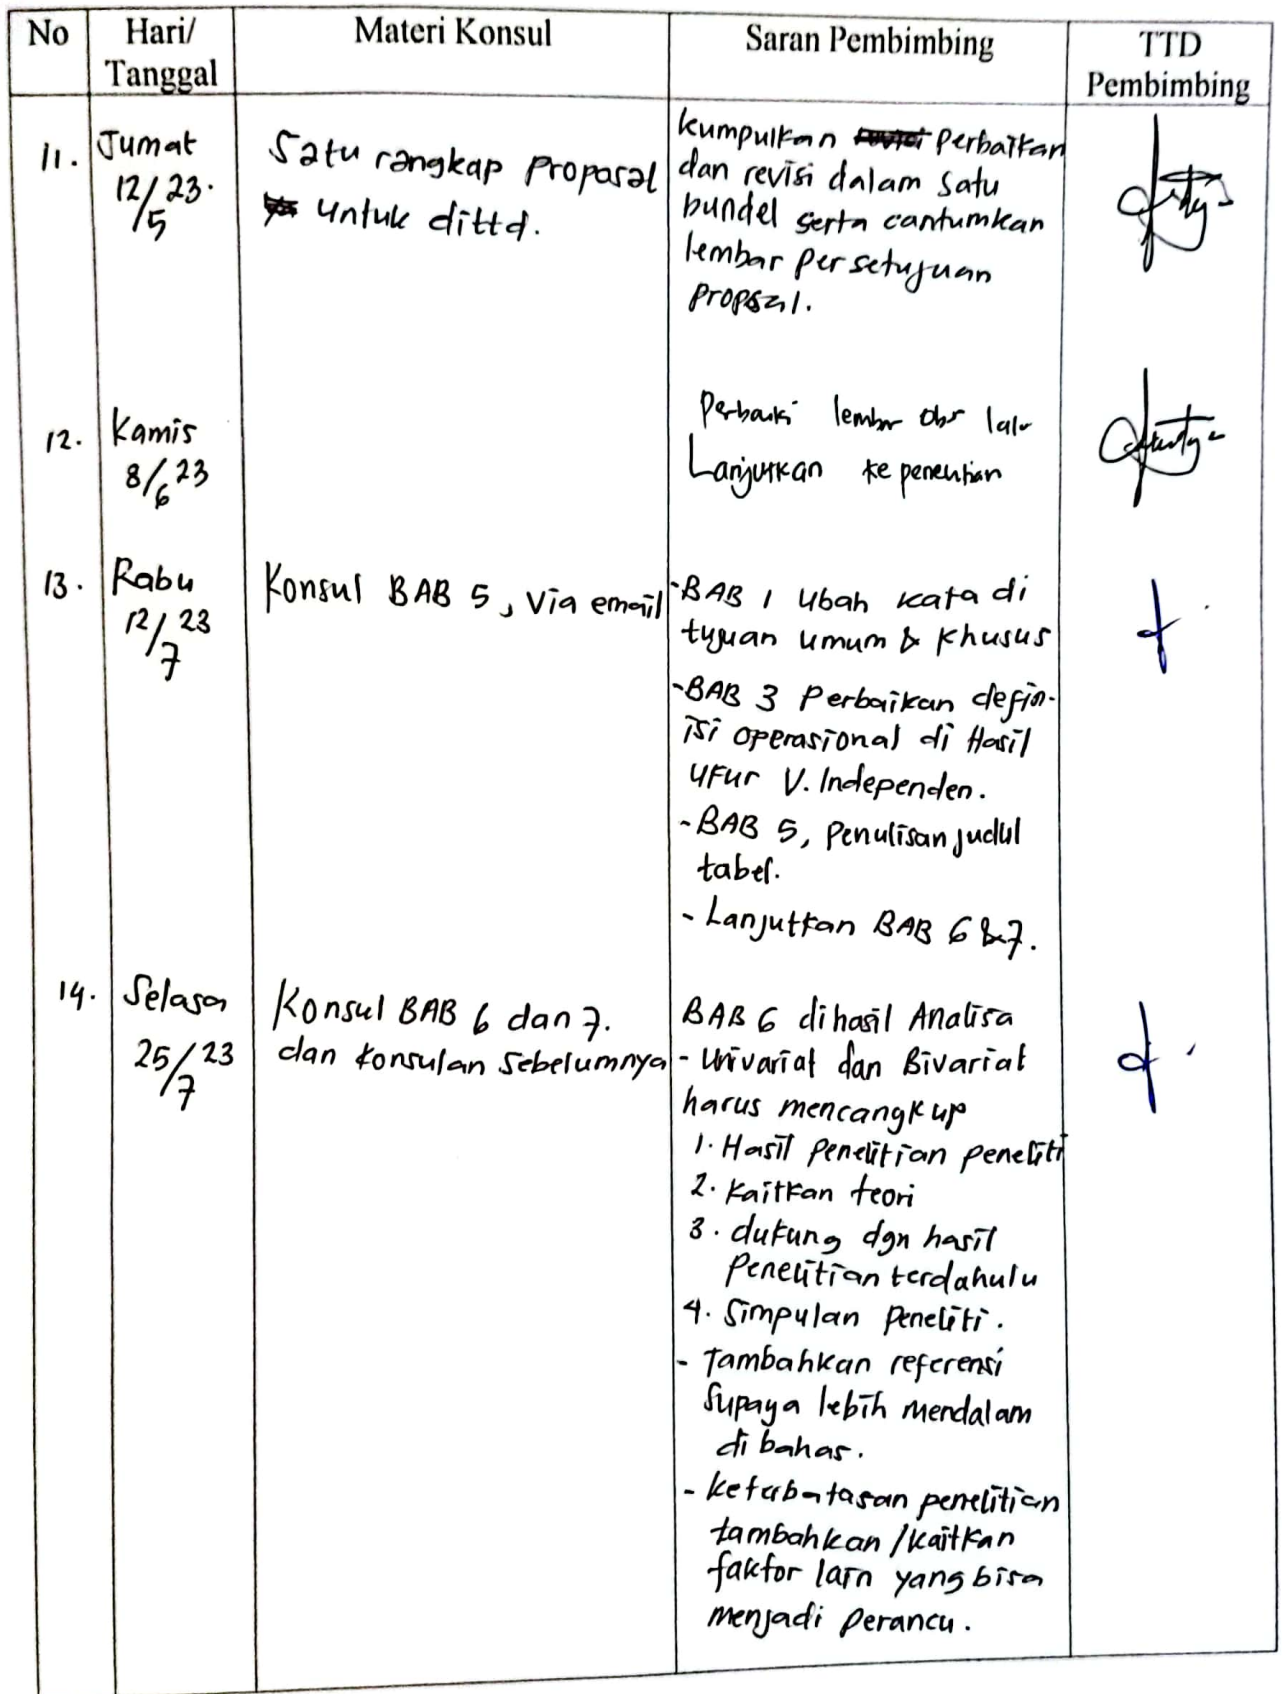 No
Hari/
Tanggal
Materi Konsul
Saran Pembimbing
TTD
Pembimbing
11.
Jumat
12/5 23.
Satu rangkap proposal
untuk dittd.
kumpulkan perbaikan
dan revisi dalam satu
bundel serta cantumkan
lembar persetujuan
propsal.
12.
Kamis
8/6 23
Perbaiki lembr obs lalu
Lanjutkan ke penelitian
13.
Rabu
12/7 23
Konsul BAB 5, via email
-BAB 1 Ubah kata di
tujuan umum & khusus
-BAB 3 Perbaikan defin-
isi operasional di Hasil
Ukur V. Independen.
-BAB 5, Penulisan judul
tabel.
- Lanjutkan BAB 6 & 7.
14.
Selasa
25/7 23
Konsul BAB 6 dan 7.
dan konsulan sebelumnya
BAB 6 dihasil Analisa
- Univariat dan Bivariat
harus mencangkup
1. Hasil penelitian peneliti
2. Kaitkan teori
3. dukung dgn hasil
Penelitian terdahulu
4. Simpulan Peneliti.
- Tambahkan referensi
Supaya lebih mendalam
di bahas.
- keterbatasan penelitian
tambahkan / kaitkan
faktor lain yang bisa
menjadi perancu.